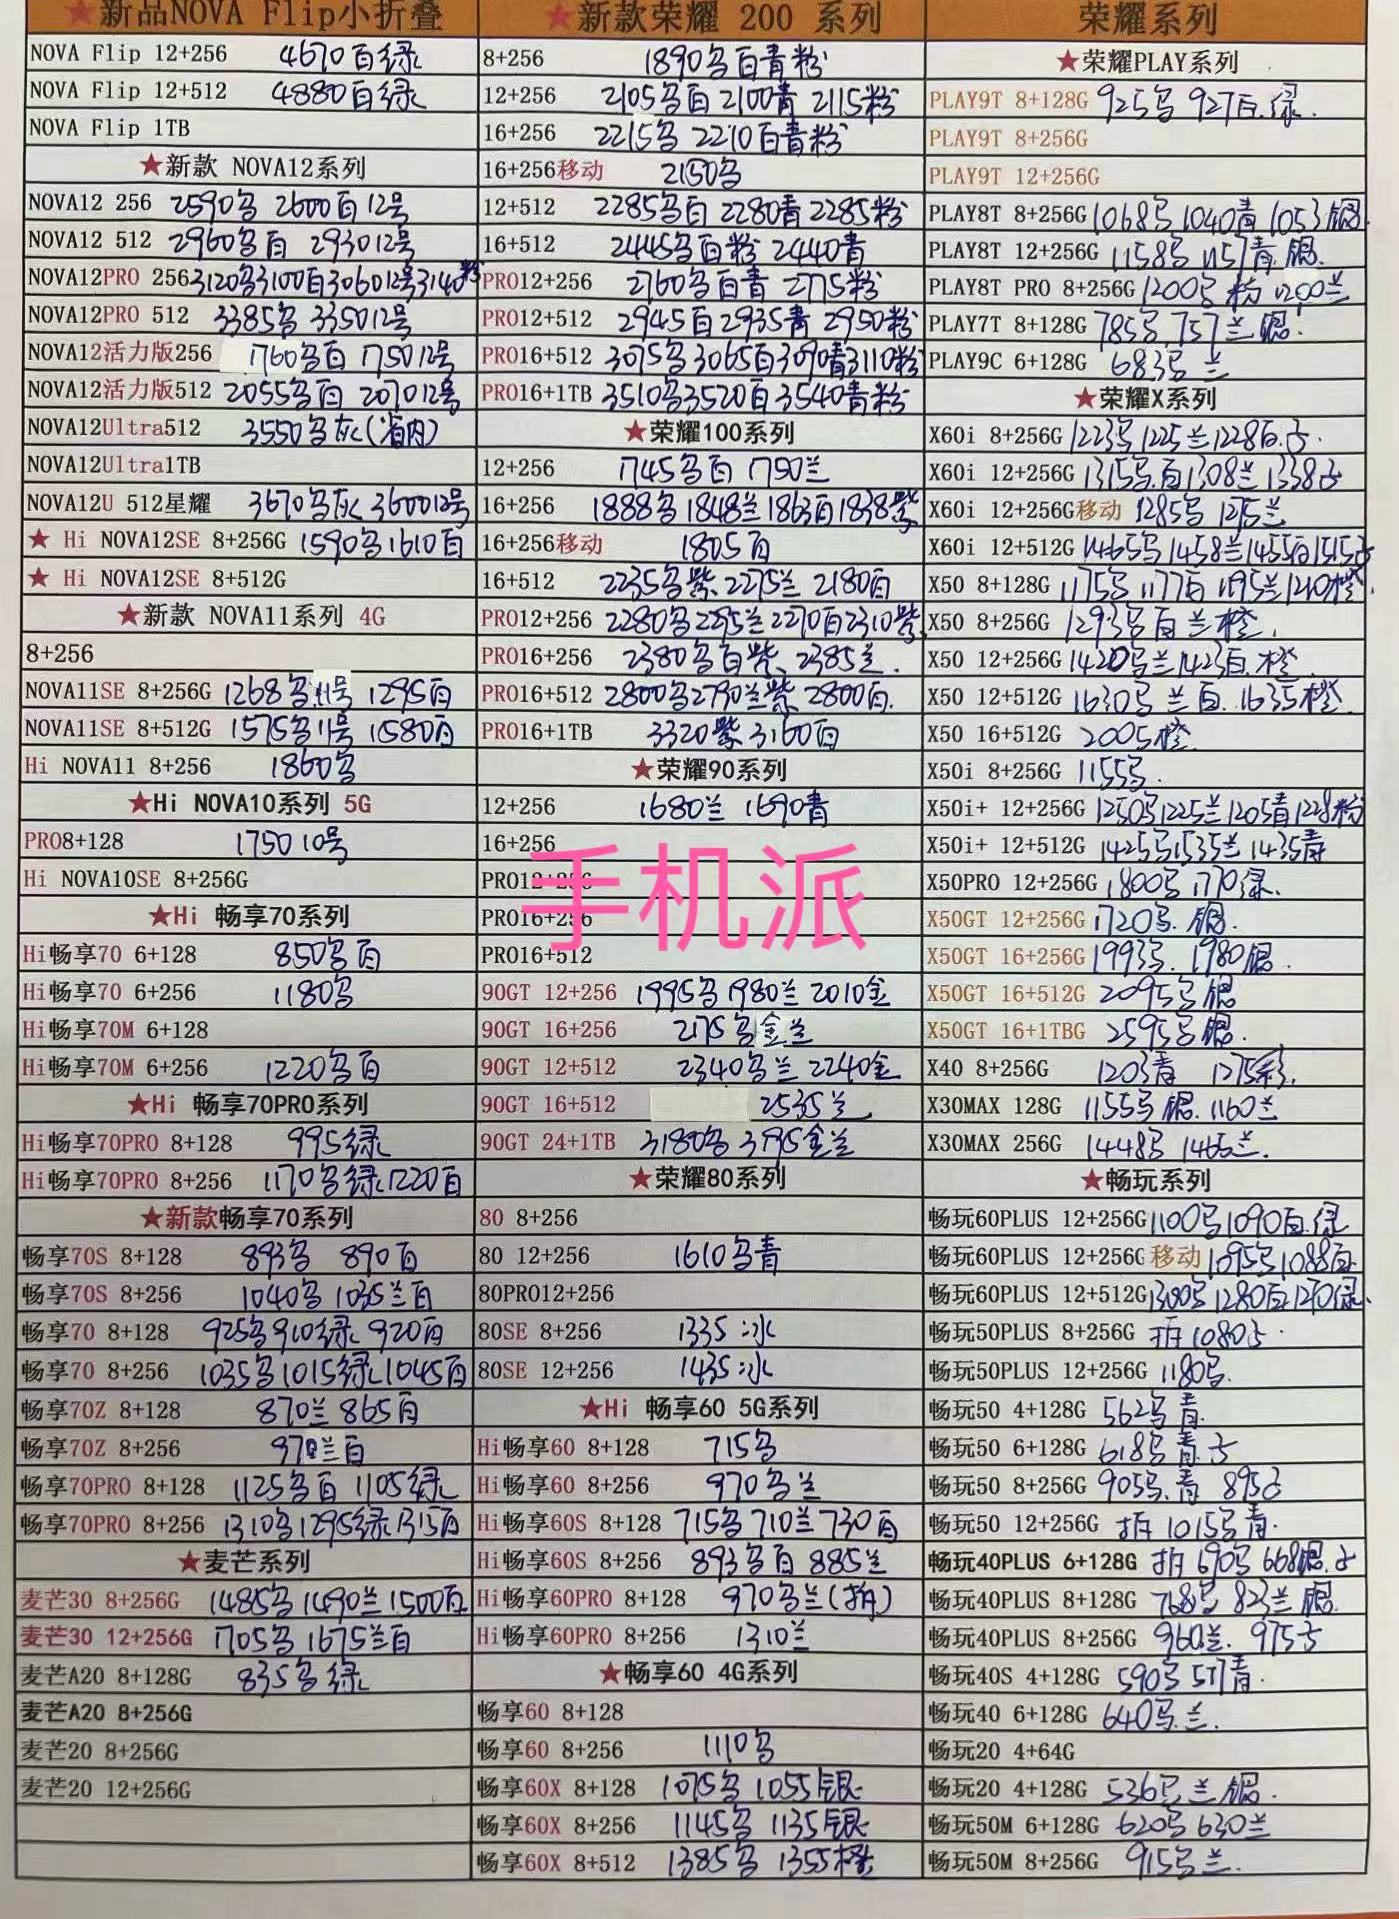 ★新品NOVA Flip小折叠
NOVA Flip 12+256 4670百绿
NOVA Flip 12+512 4880百绿
NOVA Flip 1TB
★新款 NOVA12系列
NOVA12 256 2590乌 2600百12号
NOVA12 512 2960乌百 293012号
NOVA12PRO 256 3120乌3100百306012号3140粉
NOVA12PRO 512 3385乌 335012号
NOVA12活力版256 1760乌百 175012号
NOVA12活力版512 2055乌百 207012号
NOVA12Ultra512 3550乌灰(省内)
NOVA12Ultra1TB
NOVA12U 512星耀 3670乌灰 360012号
★ Hi NOVA12SE 8+256G 1590乌1610百
★ Hi NOVA12SE 8+512G
★新款 NOVA11系列 4G
8+256
NOVA11SE 8+256G 1268乌11号 1295百
NOVA11SE 8+512G 1575乌11号 1580百
Hi NOVA11 8+256 1860乌
★Hi NOVA10系列 5G
PRO8+128 175010号
Hi NOVA10SE 8+256G
★Hi 畅享70系列
Hi畅享70 6+128 850乌百
Hi畅享70 6+256 1180乌
Hi畅享70M 6+128
Hi畅享70M 6+256 1220乌百
★Hi 畅享70PRO系列
Hi畅享70PRO 8+128 995绿
Hi畅享70PRO 8+256 1170乌绿1220百
★新款畅享70系列
畅享70S 8+128 893乌 890百
畅享70S 8+256 1040乌 1035兰百
畅享70 8+128 925乌910绿 920百
畅享70 8+256 1035乌1015绿1045百
畅享70Z 8+128 870兰 865百
畅享70Z 8+256 970兰百
畅享70PRO 8+128 1125乌百 1105绿
畅享70PRO 8+256 1310乌1295绿1315百
★麦芒系列
麦芒30 8+256G 1485乌1490兰1500百
麦芒30 12+256G 1705乌 1675兰百
麦芒A20 8+128G 835乌绿
麦芒A20 8+256G
麦芒20 8+256G
麦芒20 12+256G
★新款荣耀 200 系列
8+256 1890乌百青粉
12+256 2105乌百 2100青 2115粉
16+256 2215乌 2210百青粉
16+256移动 2150乌
12+512 2285乌百 2280青 2285粉
16+512 2445乌百粉 2440青
PRO12+256 2760乌百青 2775粉
PRO12+512 2945百2935青 2950粉
PRO16+512 3075乌3065百3090青3110粉
PRO16+1TB 3510乌3520百3540青粉
★荣耀100系列
12+256 1745乌百 1750兰
16+256 1888乌1848兰1863百1838紫
16+256移动 1805百
16+512 2235乌紫 2275兰 2180百
PRO12+256 2280乌2295兰2270百2310紫
PRO16+256 2380乌百紫 2385兰.
PRO16+512 2800乌2790兰紫 2800百.
PRO16+1TB 3320紫3160百
★荣耀90系列
12+256 1680兰 1690青
16+256
PRO12+256
手机派
PRO16+256
PRO16+512
90GT 12+256 1995乌1980兰 2010金
90GT 16+256 2175乌金兰
90GT 12+512 2340乌兰 2240金
90GT 16+512 2535兰
90GT 24+1TB 3180乌 3195金兰
★荣耀80系列
80 8+256
80 12+256 1610乌青
80PRO12+256
80SE 8+256 1335冰
80SE 12+256 1435冰
★Hi 畅享60 5G系列
Hi畅享60 8+128 715乌
Hi畅享60 8+256 970乌兰
Hi畅享60S 8+128 715乌710兰730百
Hi畅享60S 8+256 893乌百 885兰
Hi畅享60PRO 8+128 970乌兰(拍)
Hi畅享60PRO 8+256 1310兰
★畅享60 4G系列
畅享60 8+128
畅享60 8+256 1110乌
畅享60X 8+128 1075乌 1055银
畅享60X 8+256 1145乌 1135银
畅享60X 8+512 1385乌 1355橙
荣耀系列
★荣耀PLAY系列
PLAY9T 8+128G 925乌 927百.绿.
PLAY9T 8+256G
PLAY9T 12+256G
PLAY8T 8+256G 1068乌1040青1053银.
PLAY8T 12+256G 1158乌 1157青.银.
PLAY8T PRO 8+256G 1200乌 粉 1200兰
PLAY7T 8+128G 785乌.757兰 银.
PLAY9C 6+128G 683乌 兰
★荣耀X系列
X60i 8+256G 1223乌1225兰1228百.紫.
X60i 12+256G 1315乌.百1308兰 1338紫
X60i 12+256G移动 1285乌 1275兰
X60i 12+512G 1465乌1458兰1455百1515紫
X50 8+128G 1175乌.1177百 1195兰1210橙
X50 8+256G 1293乌百兰橙.
X50 12+256G 1420乌兰1423百.橙
X50 12+512G 1630乌 兰 百. 1635橙.
X50 16+512G 2005橙.
X50i 8+256G 1155乌.
X50i+ 12+256G 1250乌1225兰1205青1228粉
X50i+ 12+512G 1425乌1535兰 1435青
X50PRO 12+256G 1800乌 1770绿.
X50GT 12+256G 1720乌. 银.
X50GT 16+256G 1993乌. 1980银.
X50GT 16+512G 2095乌银
X50GT 16+1TBG 2595乌银.
X40 8+256G 1203青 1275彩.
X30MAX 128G 1155乌 银.1160兰
X30MAX 256G 1448乌 1465兰.
★畅玩系列
畅玩60PLUS 12+256G 1100乌1090百.绿
畅玩60PLUS 12+256G 移动 1095乌1088百.
畅玩60PLUS 12+512G 1300乌1280百1270绿.
畅玩50PLUS 8+256G 拍1080紫.
畅玩50PLUS 12+256G 1180乌.
畅玩50 4+128G 562乌 青.
畅玩50 6+128G 618乌 青.紫
畅玩50 8+256G 905乌.青 895紫
畅玩50 12+256G 拍 1015乌青.
畅玩40PLUS 6+128G 拍 690乌 668银.紫
畅玩40PLUS 8+128G 768乌 823兰 银.
畅玩40PLUS 8+256G 960兰. 975紫
畅玩40S 4+128G 590乌577青.
畅玩40 6+128G 640乌.兰.
畅玩20 4+64G
畅玩20 4+128G 536乌 兰 银.
畅玩50M 6+128G 620乌 630兰
畅玩50M 8+256G 915乌兰.